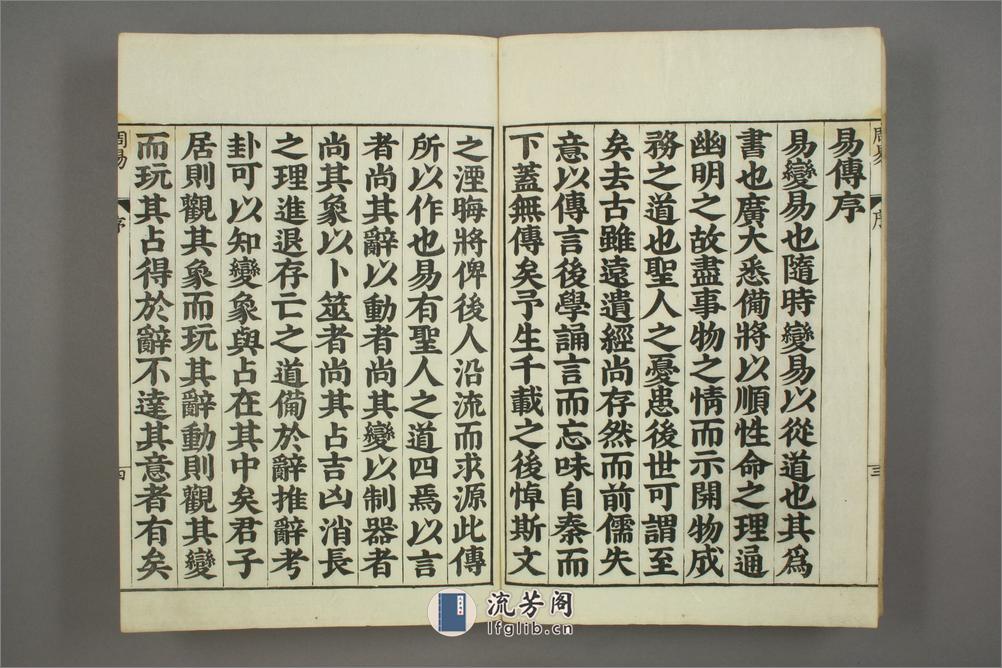 易傳序
易變易也隨時變易以從道也其爲
書也廣大悉備將以順性命之理通
幽明之故盡事物之情而示開物成
務之道也聖人之憂患後世可謂至
矣去古雖遠遺經尚存然而前儒失
意以傳言後學誦言而忘味自秦而
下蓋無傳矣予生千載之後悼斯文
之湮晦將俾後人沿流而求源此傳
所以作也易有聖人之道四焉以言
者尚其辭以動者尚其變以制器者
尚其象以卜筮者尚其占吉凶消長
之理進退存亡之道備於辭推辭考
卦可以知變象與占在其中矣君子
居則觀其象而玩其辭動則觀其變
而玩其占得於辭不達其意者有矣
周易
序
三
周易
序
四
流芳阁
lfglib.cn